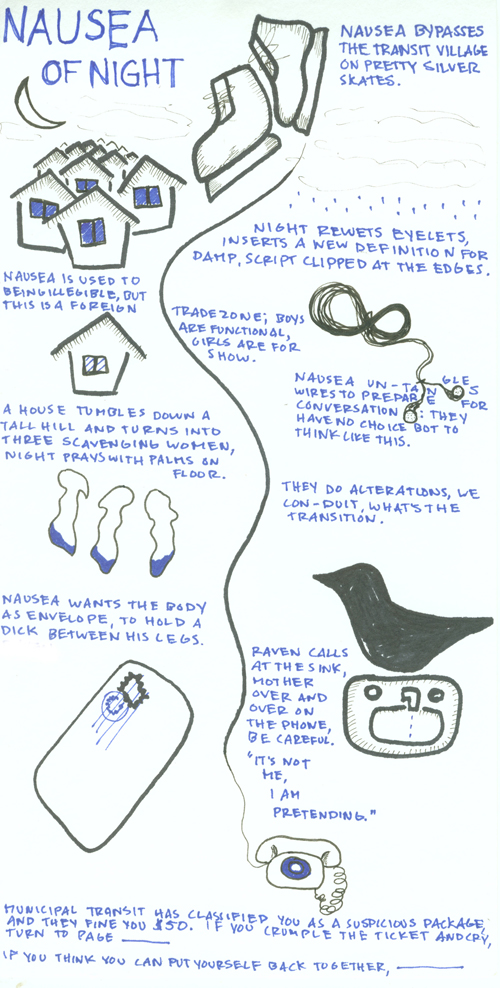 NAUSEA
OF NIGHT
NAUSEA BYPASSES
THE TRANSIT VILLAGE
ON PRETTY SILVER
SKATES.
NIGHT REWETS EYELETS,
INSERTS A NEW DEFINITION FOR
DAMP, SCRIPT CLIPPED AT THE EDGES.
NAUSEA IS USED TO
BEING ILLEGIBLE, BUT
THIS IS A FOREIGN
TRADE ZONE; BOYS
ARE FUNCTIONAL,
GIRLS ARE FOR
SHOW.
NAUSEA UN-TANGLES
WIRES TO PREPARE FOR
CONVERSATION: THEY
HAVE NO CHOICE BOT TO
THINK LIKE THIS.
A HOUSE TUMBLES DOWN A
TALL HILL AND TURNS INTO
THREE SCAVENGING WOMEN,
NIGHT PRAYS WITH PALMS ON
FLOOR.
THEY DO ALTERATIONS, WE
CON-DUIT, WHAT'S THE
TRANSITION.
NAUSEA WANTS THE BODY
AS ENVELOPE, TO HOLD A
DICK BETWEEN HIS LEGS.
RAVEN CALLS
AT THE SINK,
MOTHER
OVER AND
OVER ON
THE PHONE,
BE CAREFUL.
"IT'S NOT
ME,
I AM
PRETENDING."
MUNICIPAL TRANSIT HAS CLASSIFIED YOU AS A SUSPICIOUS PACKAGE,
AND THEY FINE YOU $50. IF YOU CRUMPLE THE TICKET AND CRY,
TURN TO PAGE ______
IF YOU THINK YOU CAN PUT YOURSELF BACK TOGETHER, ______